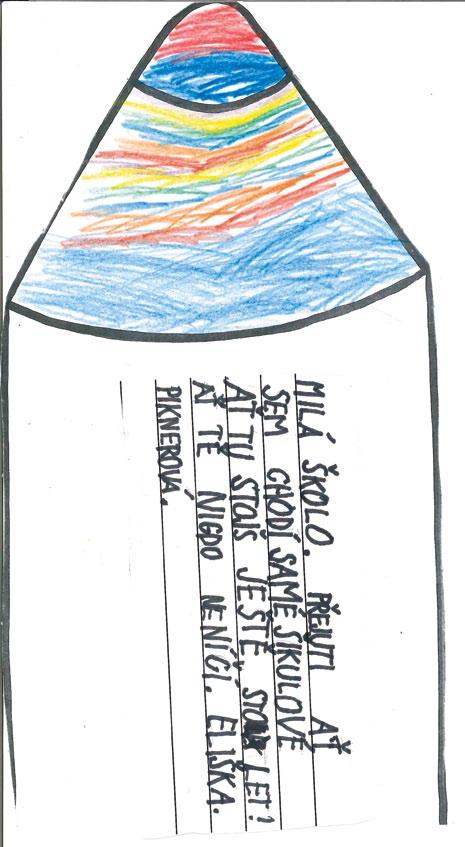 MILÁ ŠKOLO. PŘEJUTI AŤ
SEM CHODÍ SAMÉ SIKULOVÉ
AŤ TU STOJÍŠ JEŠTĚ LET!
AŤ TĚ NIGDO NENÍČÍ. ELIŠKA.
PIKNEROVÁ.